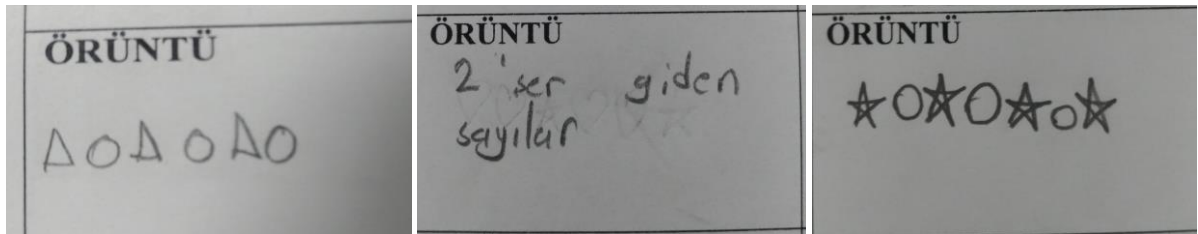 ÖRÜNTÜ
ÖRÜNTÜ
2'şer giden
sayılar
ÖRÜNTÜ